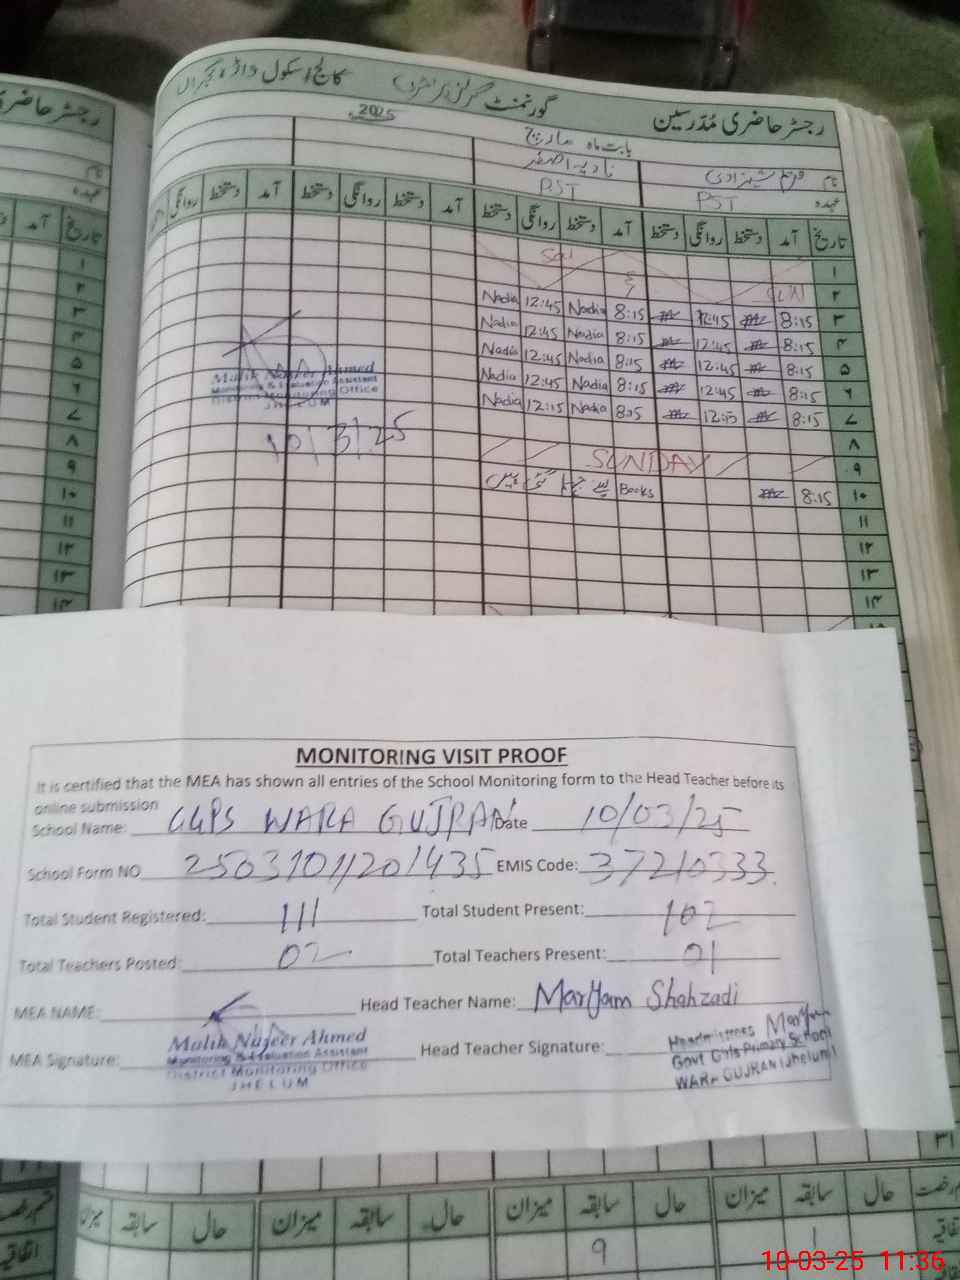 رجسٹر حاضری مُدرّسین گورنمنٹ گرلز پرائمری کالج/سکول واڑہ گجراں
بابت ماہ مارچ 2025
نام مریم شہزادی نادیہ اصغر
عہدہ PST PST
تاریخ آمد دستخط روانگی دستخط آمد دستخط روانگی دستخط آمد دستخط روانگی دستخط آمد دستخط روانگی
۱ Sat
۲ SUN
۳ 8:15 12:45 8:15 Nadia 12:45 Nadia
۴ 8:15 12:45 8:15 Nadia 12:45 Nadia
۵ 8:15 12:45 8:15 Nadia 12:45 Nadia
۶ 8:15 12:45 8:15 Nadia 12:45 Nadia
۷ 8:15 8:15 Nadia 12:15 Nadia
۸
۹ SUNDAY
۱۰ 8:15 Books لینے جہلم گئی ہیں
۱۱
۱۲
۱۳
۱۴
Malik Nazeer Ahmed
Monitoring & Evaluation Assistant
District Monitoring Office
JHELUM
10/3/25
رجسٹر حاضری
نام
عہدہ
تاریخ آمد
۱
۲
۳
۴
۵
۶
۷
۸
۹
۱۰
۱۱
۱۲
۱۳
۱۴
MONITORING VISIT PROOF
It is certified that the MEA has shown all entries of the School Monitoring form to the Head Teacher before its
online submission
School Name: GGPS WARA GUJRAN Date 10/03/25
School Form NO 25031011201435 EMIS Code: 37210333
Total Student Registered: 111 Total Student Present: 102
Total Teachers Posted: 02 Total Teachers Present: 01
MEA NAME: Head Teacher Name: Maryam Shahzadi
MEA Signature: Malik Nazeer Ahmed
Monitoring & Evaluation Assistant
District Monitoring Office
JHELUM
Head Teacher Signature: Maryam
Headmistress
Govt Girls Primary School
WARA GUJRAN (Jhelum)
۳۱
قسم رخصت حال سابقہ میزان حال سابقہ میزان حال سابقہ میزان حال سابقہ میزان
اتفاقیہ 1 9
10-03-25 11:36